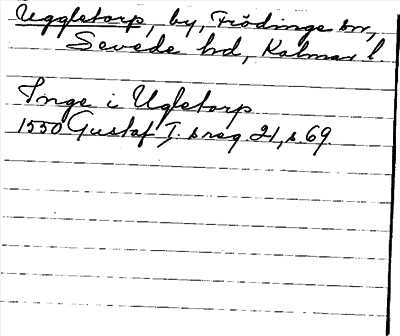 Uggletorp, by, Frödinge sn,
Sevede hd, Kalmar l.
Inge i Ugletorp
1550 Gustaf I:s reg. 21, s. 69.